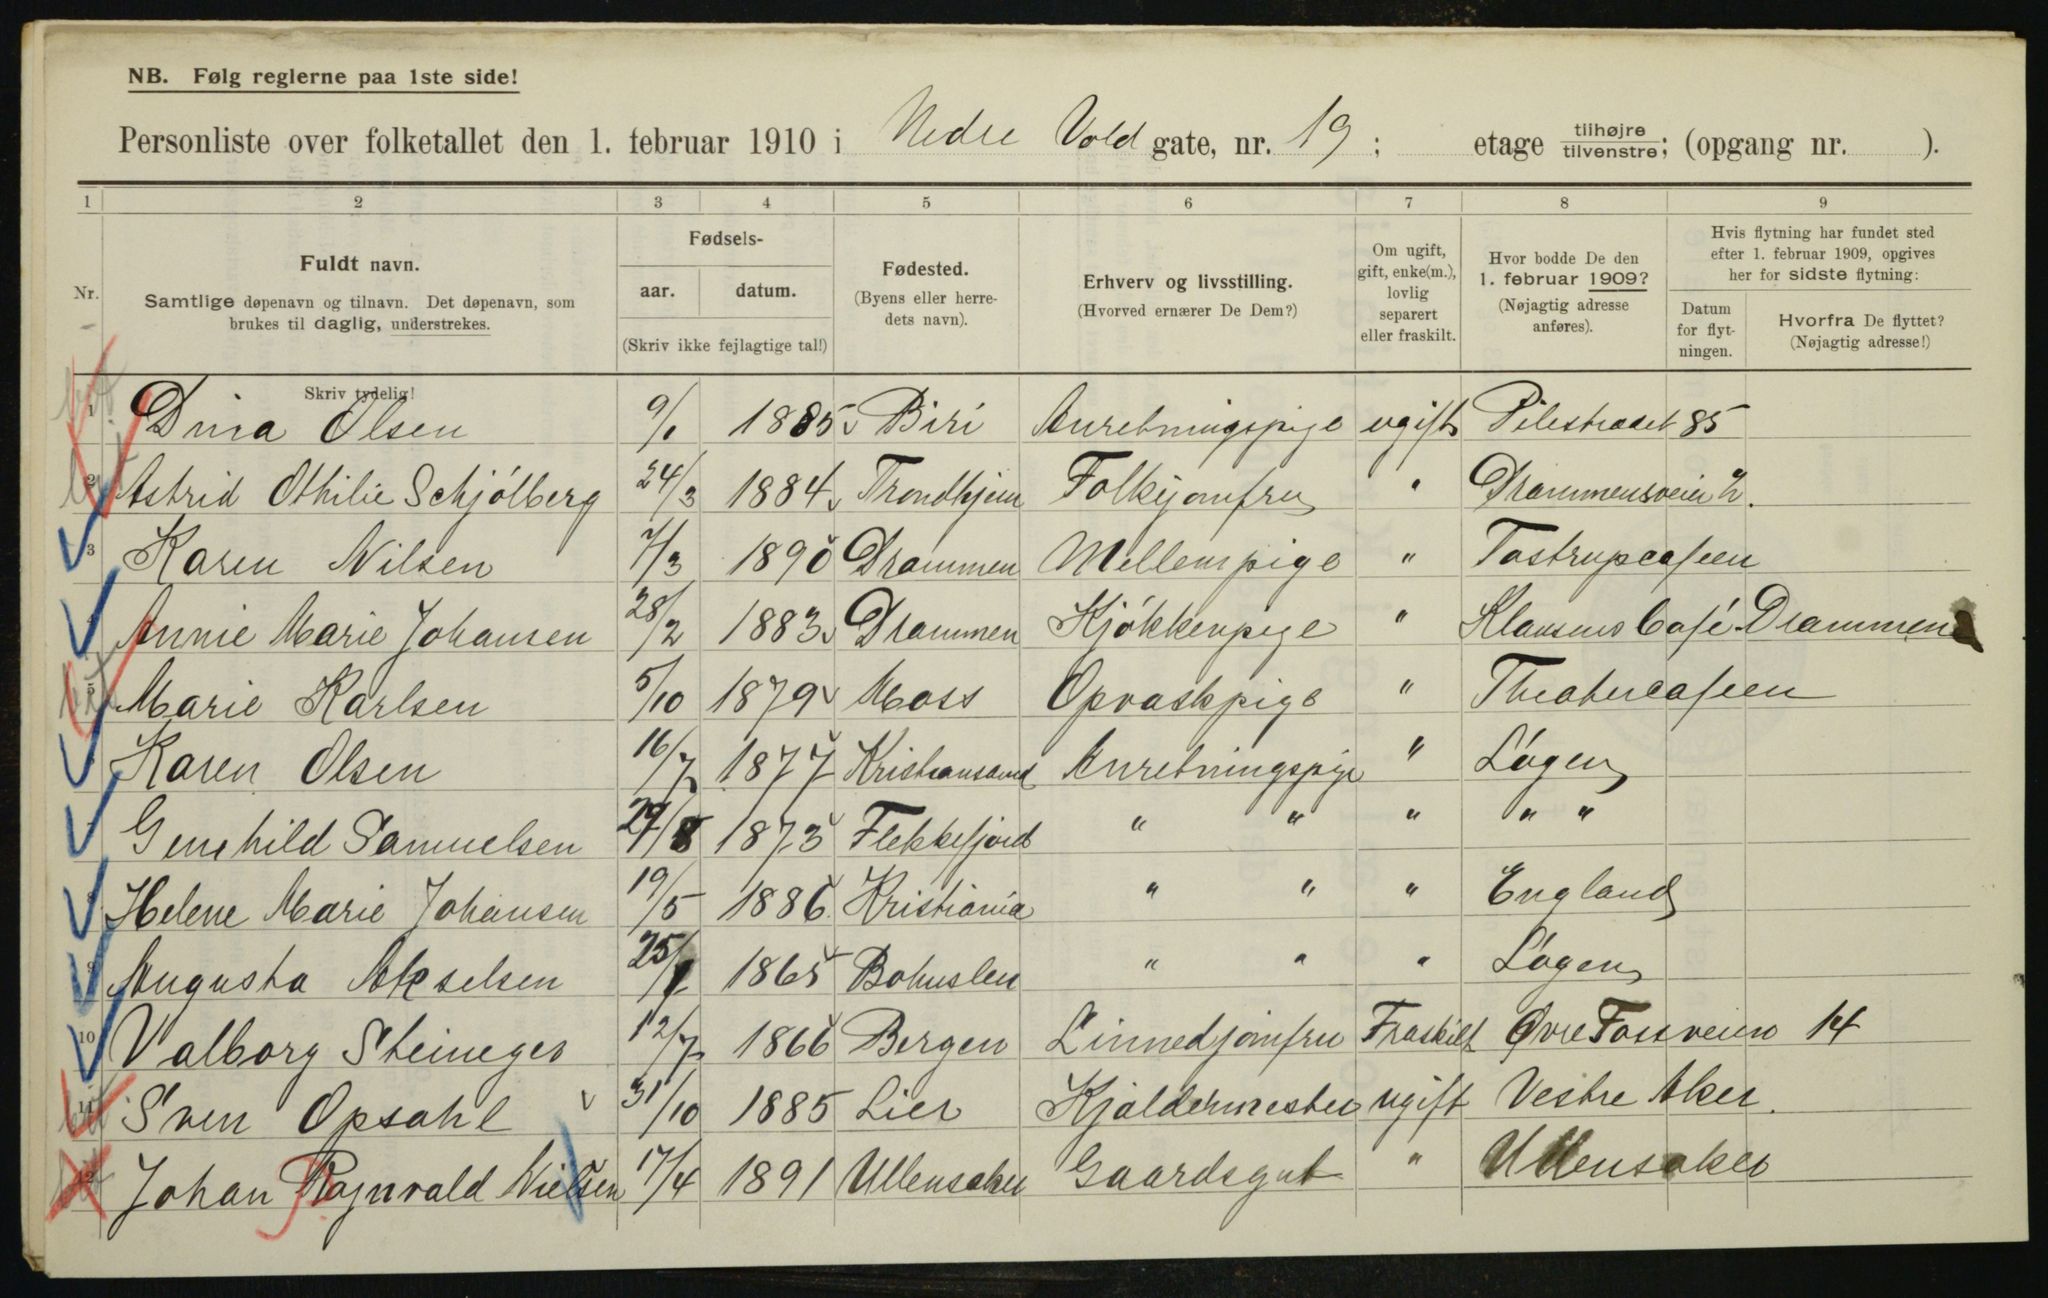 NB. Følg reglerne paa 1ste side!
Personliste over folketallet den 1. februar 1910 i Nedre Vold gate, nr. 19; etage tilhøjre tilvenstre; (opgang nr. ).
1 2 3 4 5 6 7 8 9
Nr.
Fuldt navn.
Samtlige døpenavn og tilnavn. Det døpenavn, som
brukes til daglig, understrekes.
Skriv tydelig!
Fødsels-
aar. datum.
(Skriv ikke fejlagtige tal!)
Fødested.
(Byens eller herre-
dets navn).
Erhverv og livsstilling.
(Hvorved ernærer De Dem?)
Om ugift,
gift, enke(m.),
lovlig
separert
eller fraskilt.
Hvor bodde De den
1. februar 1909?
(Nøjagtig adresse
anføres).
Hvis flytning har fundet sted
efter 1. februar 1909, opgives
her for sidste flytning:
Datum
for flyt-
ningen.
Hvorfra De flyttet?
(Nøjagtig adresse!)
1 Dina Olsen 9/1 1885 Biri Anretningspige ugift Pilestradet 85
2 Astrid Othilie Schjólberg 24/3 1884 Trondhjem Folkijomfru " Drammensveien
3 Karen Nilsen 7/3 1890 Drammen Mellempige " Tostrupcafeen
4 Annie Marie Johansen 28/2 1883 Drammen Kjókkenpige " Klausens Café Drammen
5 Marie Karlsen 5/10 1879 Moss Opvaskpige " Theatercafeen
Karen Olsen 16/7 1877 Kristiansand Anretningspige " Logen
7 Gunhild Samuelsen 29/8 1873 Flekkefjord " " " " "
8 Helene Marie Johansen 19/5 1886 Kristiania " " " England
9 Augusta Akselsen 25/1 1865 Bohuslen " " " Logen
10 Valborg Steineger 12/7 1866 Bergen Linnedjomfru Fraskilt Øvre Fossveien 14
11 Sven Opsahl 31/10 1885 Lier Kjældermester ugift Vestre Aker.
12 Johan Ragnvald Nielsen 17/4 1891 Ullensaker Gaardsgut " Ullensaker